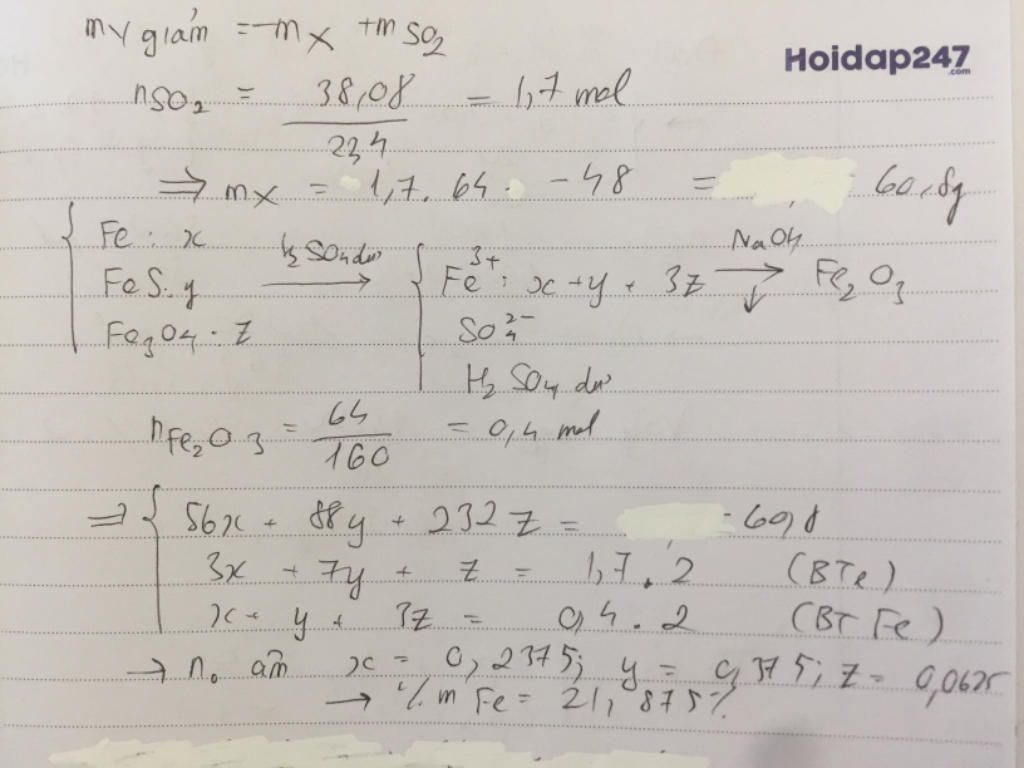 m Y giảm = -m X + m SO2
Hoidap247
.com
nSO2 = 38,08 / 22,4 = 1,7 mol
⇒ mX = 1,7 . 64 . -48 = 60,8g
Fe : x
FeS : y
Fe3O4 : z
H2SO4 dư →
Fe3+ : x + y + 3z
SO4 2-
H2SO4 dư
NaOH → ↓ Fe2O3
nFe2O3 = 64 / 160 = 0,4 mol
⇒ { 56x + 88y + 232z = 60,8
3x + 7y + z = 1,7 . 2 (BTe)
x + y + 3z = 0,4 . 2 (BT Fe)
→ n0 âm x = 0,2375; y = 0,375; z = 0,0625
→ % m Fe = 21,875%